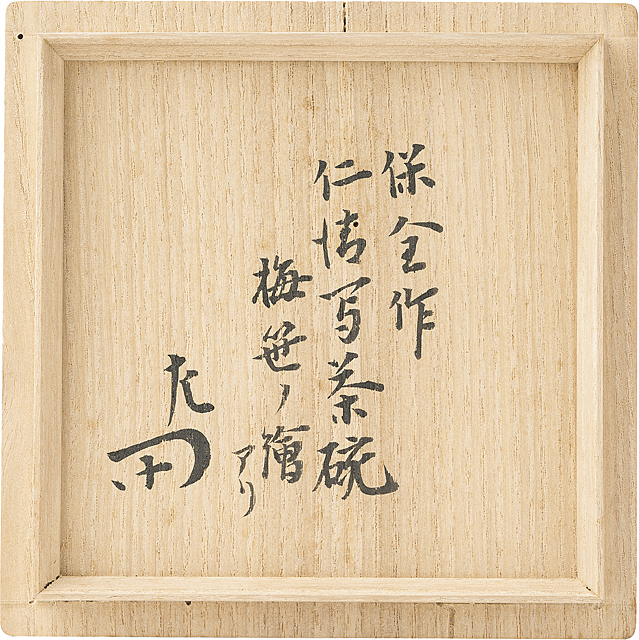 保全作
仁清写茶碗
梅笹ノ繪
アリ
左